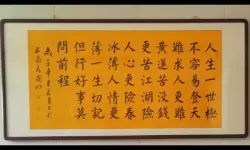 人生一世極
不容易登天
難求人更難
黃蓮苦沒錢
更苦江湖險
人心更險春
冰薄人情更
薄一生切記
但行好事莫
問前程